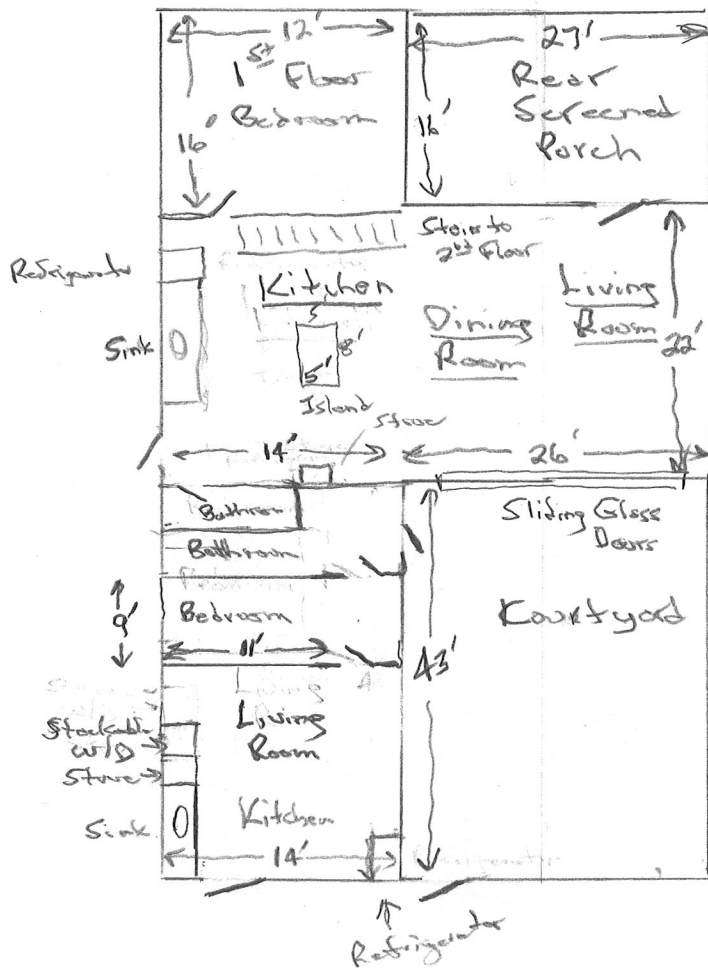 12'
1st Floor
Bedroom
16'
27'
Rear
Screened
Porch
16'
Stair to
2nd Floor
Refrigerator
Kitchen
Living
Room
Dining
Room
22'
Sink
5'
8'
5'
Island
Stove
14'
26'
Bathroom
Sliding Glass
Doors
Bathroom
Bedroom
9'
11'
Kourtyard
43'
Living
Room
Stackable
W/D
Stove
Sink
Kitchen
14'
Refrigerator